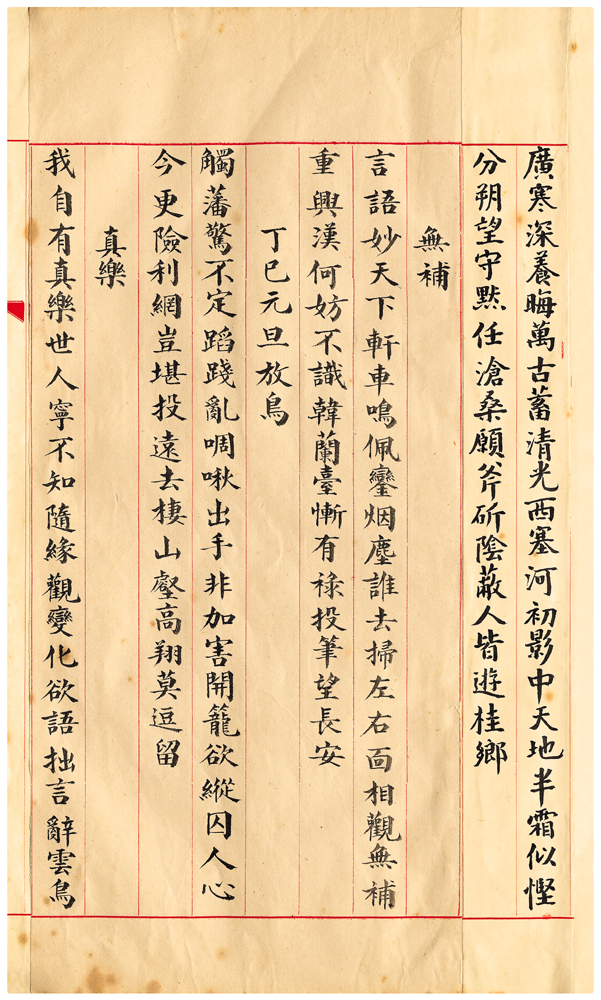 廣寒深養晦萬古蓄清光西塞河初影中天地半霜似慳
分朔望守默任滄桑願斧斫陰蔽人皆遊桂鄉
無補
言語妙天下軒車鳴佩鑾烟塵誰去掃左右面相觀無補
重興漢何妨不識韓蘭臺慚有祿投筆望長安
丁巳元旦放鳥
觸藩驚不定蹈踐亂啁啾出手非加害開籠欲縱囚人心
今更險利網豈堪投遠去棲山壑高翔莫逗留
真樂
我自有真樂世人寧不知隨緣觀變化欲語拙言辭雲鳥